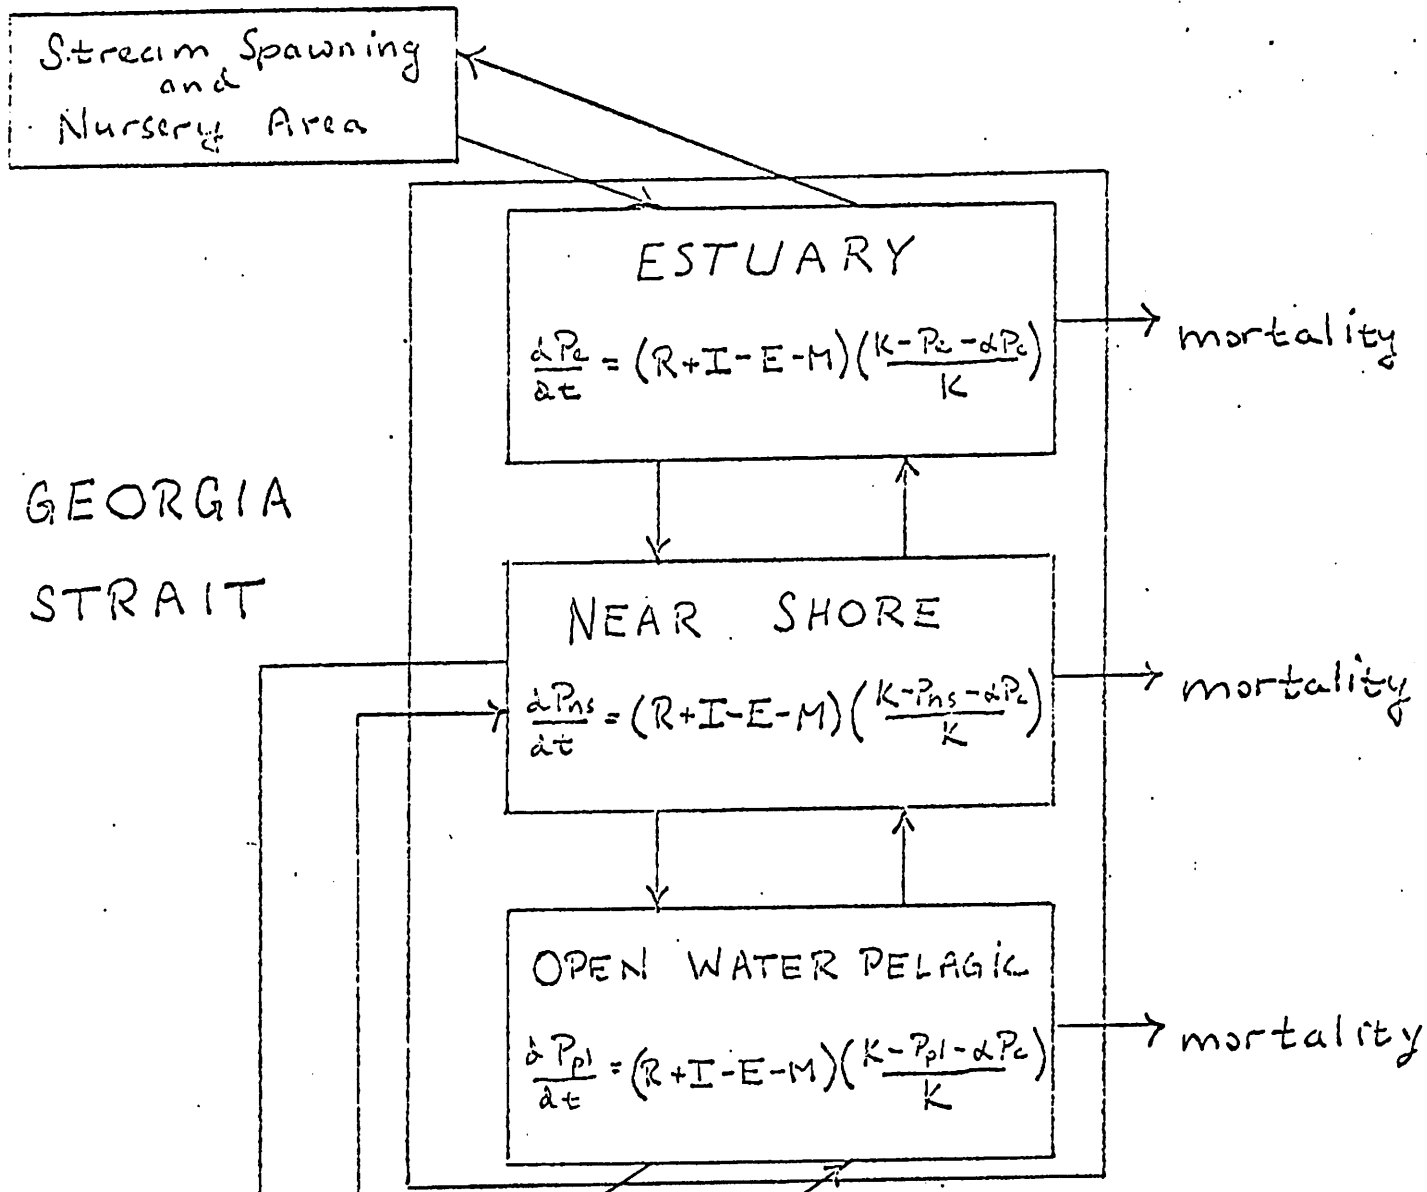 Stream Spawning
and
Nursery Area
ESTUARY
dPe/dt = (R+I-E-M)((K-Pe-αPc)/K)
mortality
GEORGIA
STRAIT
NEAR SHORE
dPns/dt = (R+I-E-M)((K-Pns-αPc)/K)
mortality
OPEN WATER PELAGIC
dPpl/dt = (R+I-E-M)((K-Ppl-αPc)/K)
mortality